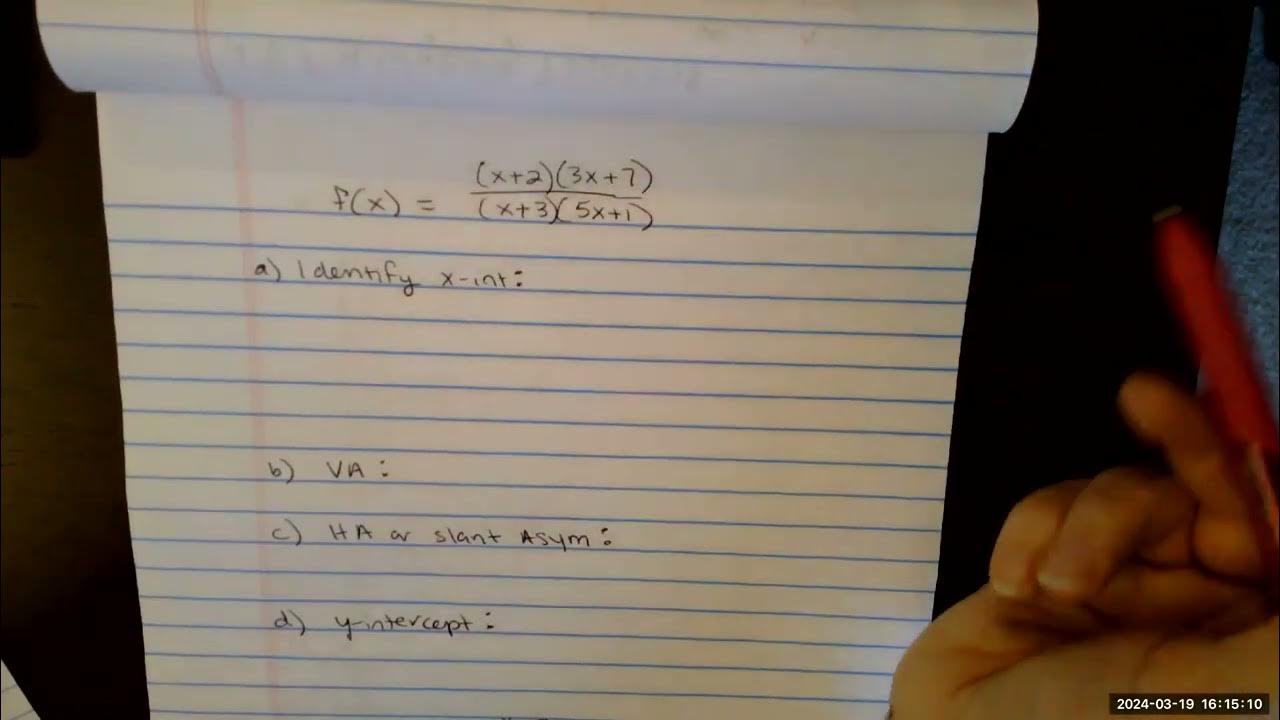 f(x) = (x+2)(3x+7)
(x+3)(5x+1)
a) Identify x-int:
b) VA:
c) HA or slant Asym:
d) y-intercept:
2024-03-19 16:15:10